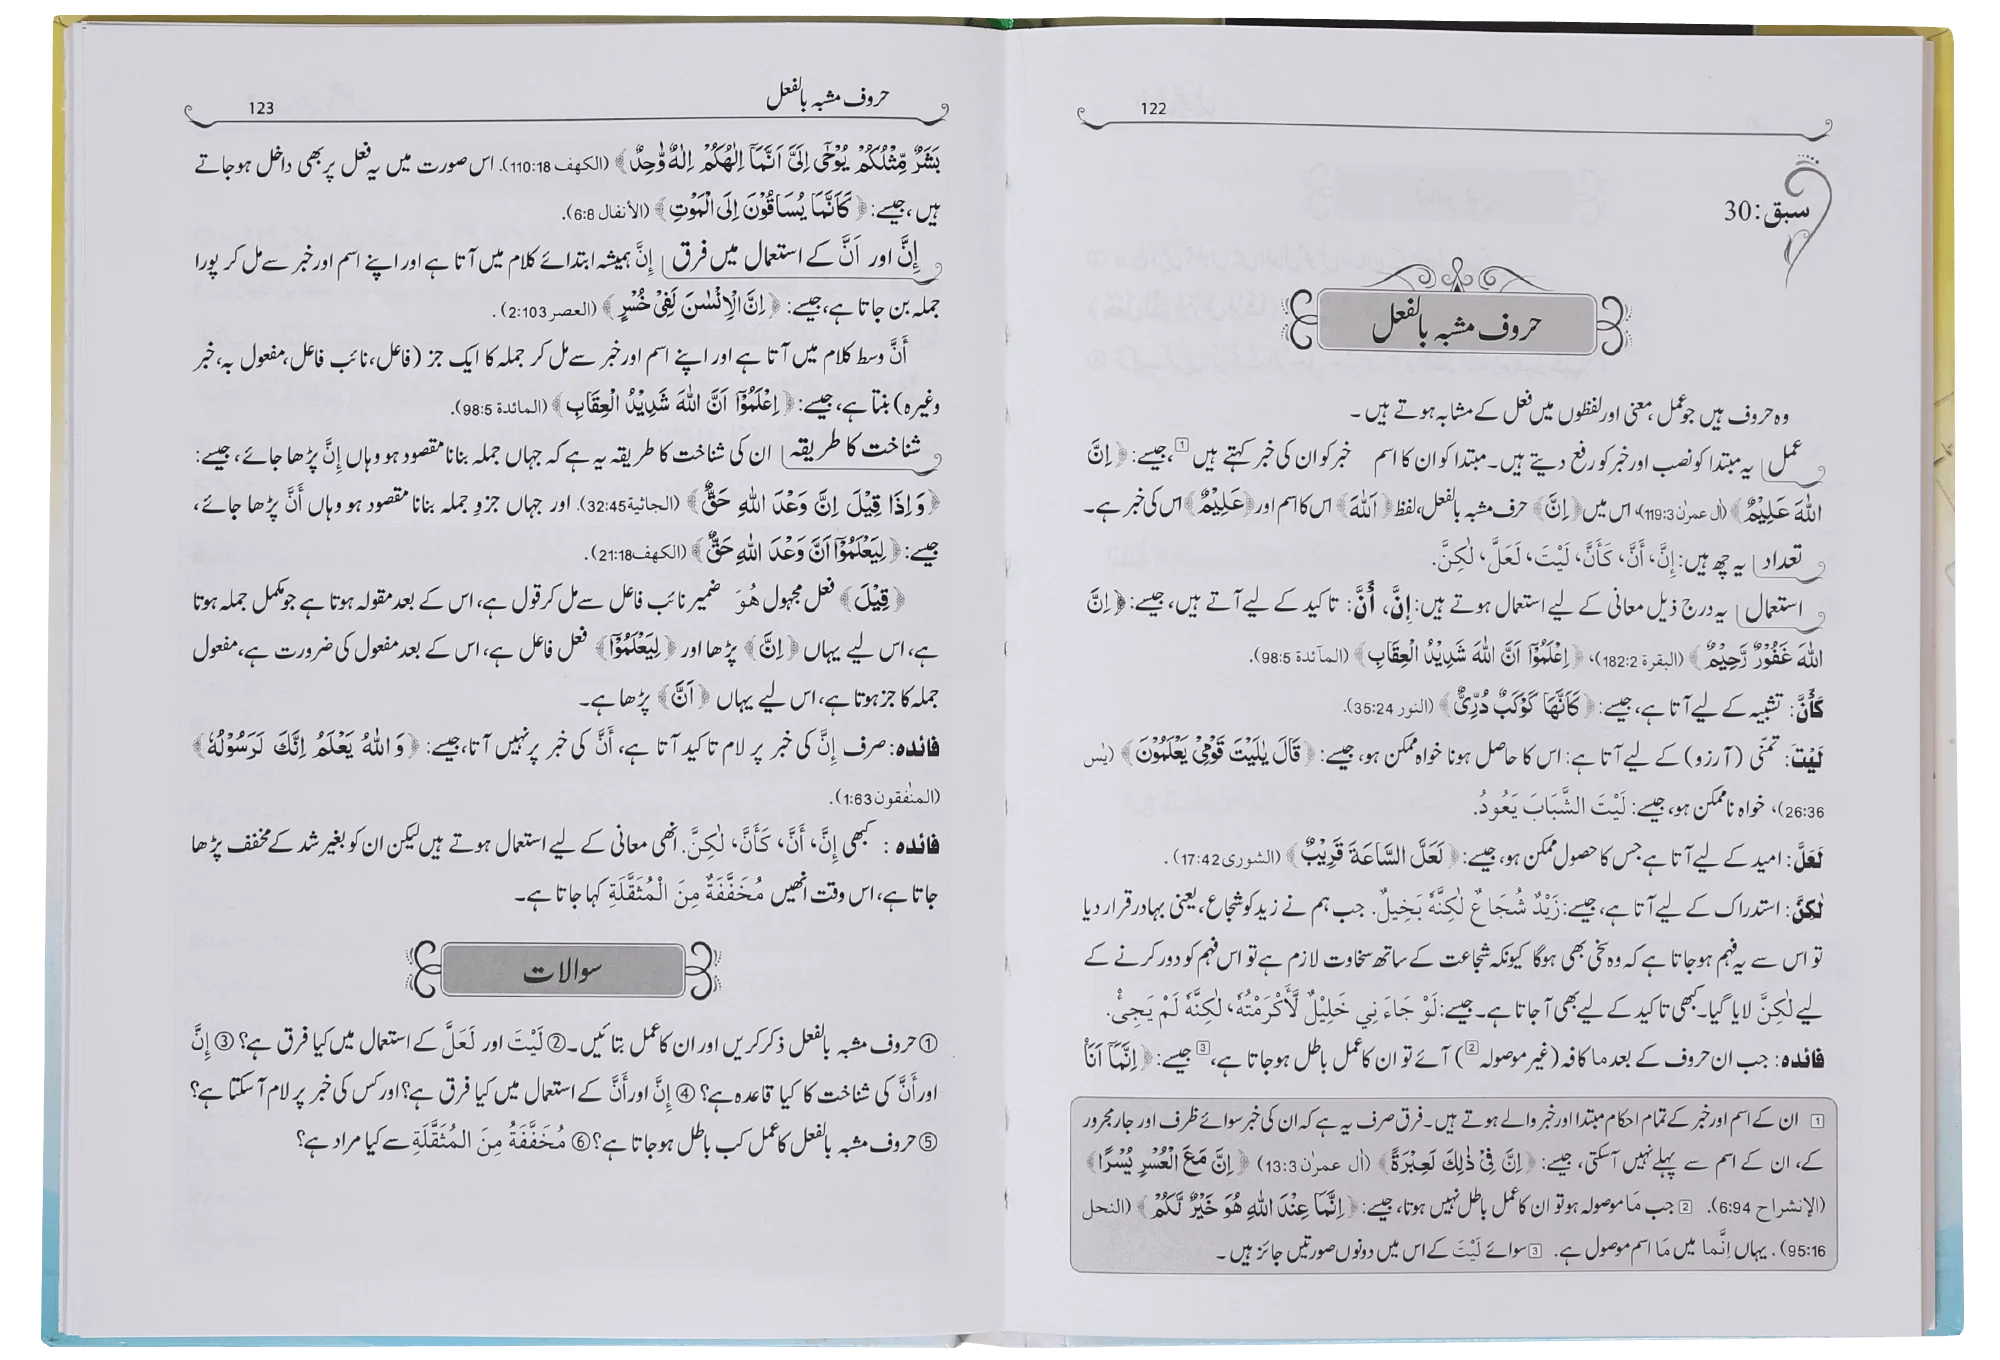 122
سبق:30
حروف مشبہ بالفعل
وہ حروف ہیں جو عمل، معنی اور لفظوں میں فعل کے مشابہ ہوتے ہیں۔
عمل یہ مبتدا کو نصب اور خبر کو رفع دیتے ہیں۔ مبتدا کو ان کا اسم خبر کو ان کی خبر کہتے ہیں [1]، جیسے: ﴿اِنَّ
اللّٰهَ عَلِيْمٌ﴾ (اٰل عمرٰن 119:3)، اس میں ﴿اِنَّ﴾ حرف مشبہ بالفعل، لفظ ﴿اَللّٰهَ﴾ اس کا اسم اور ﴿عَلِيْمٌ﴾ اس کی خبر ہے۔
تعداد یہ چھ ہیں: إِنَّ، أَنَّ، كَأَنَّ، لَيْتَ، لَعَلَّ، لٰكِنَّ.
استعمال یہ درج ذیل معانی کے لیے استعمال ہوتے ہیں: إِنَّ، أَنَّ: تاکید کے لیے آتے ہیں، جیسے: ﴿اِنَّ
اللّٰهَ غَفُوْرٌ رَّحِيْمٌ﴾ (البقرة 182:2)، ﴿اِعْلَمُوْٓا اَنَّ اللّٰهَ شَدِيْدُ الْعِقَابِ﴾ (المآئدة 98:5).
كَأَنَّ: تشبیہ کے لیے آتا ہے، جیسے: ﴿كَاَنَّهَا كَوْكَبٌ دُرِّيٌّ﴾ (النور 35:24).
لَيْتَ: تمنّی (آرزو) کے لیے آتا ہے: اس کا حاصل ہونا خواہ ممکن ہو، جیسے: ﴿قَالَ يٰلَيْتَ قَوْمِيْ يَعْلَمُوْنَ﴾ (یٰس
26:36)، خواہ ناممکن ہو، جیسے: لَيْتَ الشَّبَابَ يَعُودُ.
لَعَلَّ: امید کے لیے آتا ہے جس کا حصول ممکن ہو، جیسے: ﴿لَعَلَّ السَّاعَةَ قَرِيْبٌ﴾ (الشورى 17:42).
لٰكِنَّ: استدراک کے لیے آتا ہے، جیسے: زَيْدٌ شُجَاعٌ لٰكِنَّهُ بَخِيلٌ. جب ہم نے زید کو شجاع، یعنی بہادر قرار دیا
تو اس سے یہ فہم ہو جاتا ہے کہ وہ سخی بھی ہوگا کیونکہ شجاعت کے ساتھ سخاوت لازم ہے تو اس فہم کو دور کرنے کے
لیے لٰكِنَّ لایا گیا۔ کبھی تاکید کے لیے بھی آ جاتا ہے۔ جیسے: لَوْ جَاءَنِي خَلِيْلٌ لَّأَكْرَمْتُهُ، لٰكِنَّهُ لَمْ يَجِئْ.
فائدہ: جب ان حروف کے بعد ما کافہ (غیر موصولہ [2]) آئے تو ان کا عمل باطل ہو جاتا ہے، [3] جیسے: ﴿اِنَّمَآ اَنَا۠
[1] ان کے اسم اور خبر کے تمام احکام مبتدا اور خبر والے ہوتے ہیں۔ فرق صرف یہ ہے کہ ان کی خبر سوائے ظرف اور جار مجرور
کے، ان کے اسم سے پہلے نہیں آ سکتی، جیسے: ﴿اِنَّ فِيْ ذٰلِكَ لَعِبْرَةً﴾ (اٰل عمرٰن 13:3) ﴿اِنَّ مَعَ الْعُسْرِ يُسْرًا﴾
(الإنشراح 6:94). [2] جب مَا موصولہ ہو تو ان کا عمل باطل نہیں ہوتا، جیسے: ﴿اِنَّمَا عِنْدَ اللّٰهِ هُوَ خَيْرٌ لَّكُمْ﴾ (النحل
95:16). یہاں إِنَّما میں مَا اسم موصول ہے. [3] سوائے لَيْتَ کے اس میں دونوں صورتیں جائز ہیں۔
حروف مشبہ بالفعل
123
بَشَرٌ مِّثْلُكُمْ يُوْحٰٓى اِلَيَّ اَنَّمَآ اِلٰهُكُمْ اِلٰهٌ وَّاحِدٌ﴾ (الكهف 110:18). اس صورت میں یہ فعل پر بھی داخل ہو جاتے
ہیں، جیسے: ﴿كَاَنَّمَا يُسَاقُوْنَ اِلَى الْمَوْتِ﴾ (الأنفال 6:8).
إِنَّ اور اَنَّ کے استعمال میں فرق إِنَّ ہمیشہ ابتدائے کلام میں آتا ہے اور اپنے اسم اور خبر سے مل کر پورا
جملہ بن جاتا ہے، جیسے: ﴿اِنَّ الْاِنْسٰنَ لَفِيْ خُسْرٍ﴾ (العصر 2:103).
أَنَّ وسط کلام میں آتا ہے اور اپنے اسم اور خبر سے مل کر جملہ کا ایک جز (فاعل، نائب فاعل، مفعول بہ، خبر
وغیرہ) بنتا ہے، جیسے: ﴿اِعْلَمُوْٓا اَنَّ اللّٰهَ شَدِيْدُ الْعِقَابِ﴾ (المائدة 98:5).
شناخت کا طریقہ ان کی شناخت کا طریقہ یہ ہے کہ جہاں جملہ بنانا مقصود ہو وہاں إِنَّ پڑھا جائے، جیسے:
﴿وَاِذَا قِيْلَ اِنَّ وَعْدَ اللّٰهِ حَقٌّ﴾ (الجاثية 32:45). اور جہاں جزوِ جملہ بنانا مقصود ہو وہاں أَنَّ پڑھا جائے،
جیسے: ﴿لِيَعْلَمُوْٓا اَنَّ وَعْدَ اللّٰهِ حَقٌّ﴾ (الكهف 21:18).
﴿قِيْلَ﴾ فعل مجہول هُوَ ضمیر نائب فاعل سے مل کر قول ہے، اس کے بعد مقولہ ہوتا ہے جو مکمل جملہ ہوتا
ہے، اس لیے یہاں ﴿اِنَّ﴾ پڑھا اور ﴿لِيَعْلَمُوْٓا﴾ فعل فاعل ہے، اس کے بعد مفعول کی ضرورت ہے، مفعول
جملہ کا جز ہوتا ہے، اس لیے یہاں ﴿اَنَّ﴾ پڑھا ہے۔
فائدہ: صرف إِنَّ کی خبر پر لام تاکید آتا ہے، أَنَّ کی خبر پر نہیں آتا، جیسے: ﴿وَاللّٰهُ يَعْلَمُ اِنَّكَ لَرَسُوْلُهٗ﴾
(المنٰفقون 1:63).
فائدہ: کبھی إِنَّ، أَنَّ، كَأَنَّ، لٰكِنَّ. انھی معانی کے لیے استعمال ہوتے ہیں لیکن ان کو بغیر شد کے مخفف پڑھا
جاتا ہے، اس وقت انھیں مُخَفَّفَةٌ مِنَ الْمُثَقَّلَةِ کہا جاتا ہے۔
سوالات
① حروف مشبہ بالفعل ذکر کریں اور ان کا عمل بتائیں۔ ② لَيْتَ اور لَعَلَّ کے استعمال میں کیا فرق ہے؟ ③ إِنَّ
اور أَنَّ کی شناخت کا کیا قاعدہ ہے؟ ④ إِنَّ اور أَنَّ کے استعمال میں کیا فرق ہے؟ اور کس کی خبر پر لام آ سکتا ہے؟
⑤ حروف مشبہ بالفعل کا عمل کب باطل ہو جاتا ہے؟ ⑥ مُخَفَّفَةٌ مِنَ المُثَقَّلَةِ سے کیا مراد ہے؟